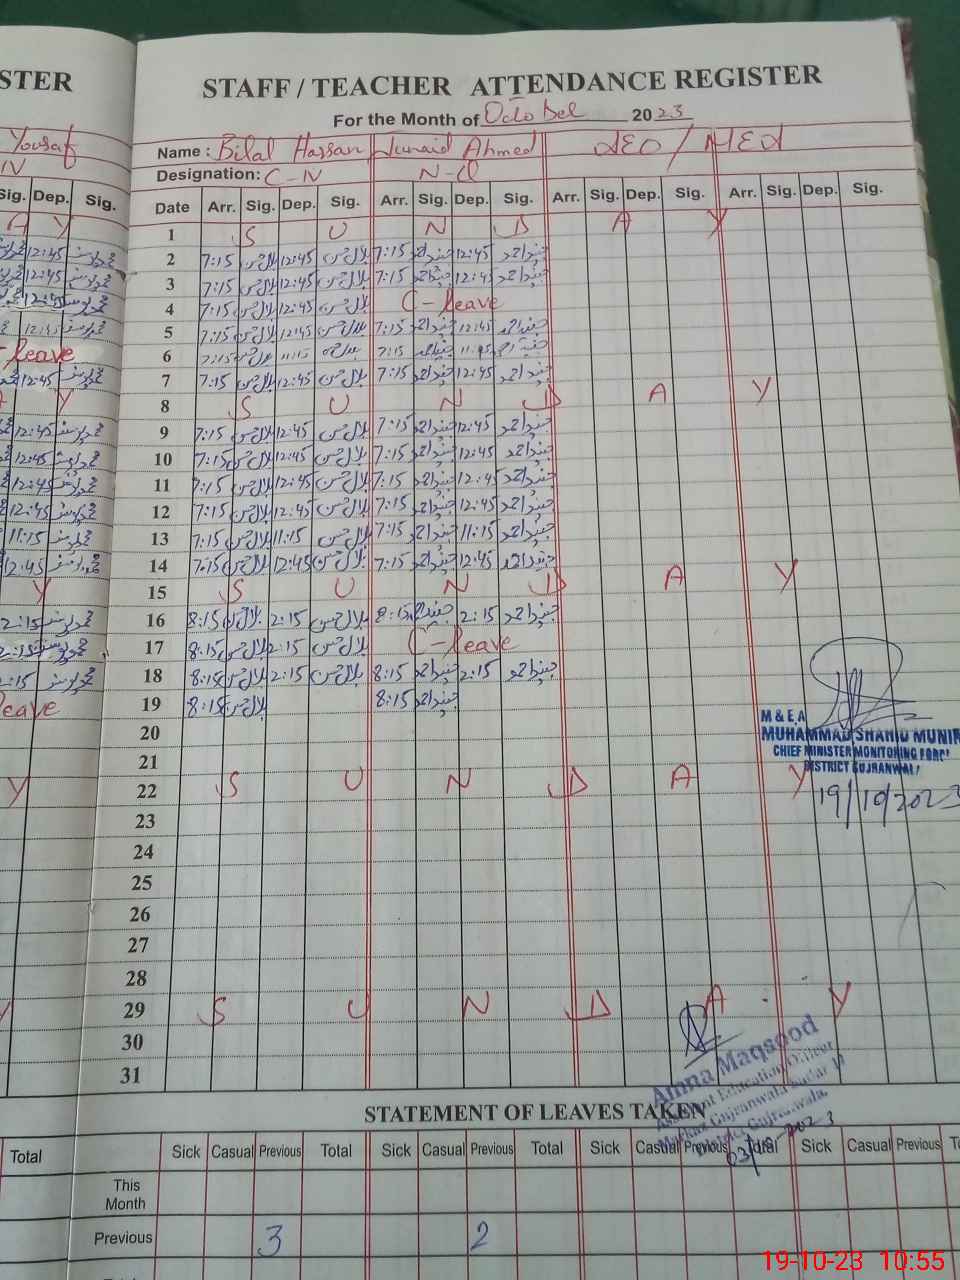 STER
STAFF / TEACHER ATTENDANCE REGISTER
For the Month of October 2023
Yousaf
Name : Bilal Hassan Junaid Ahmed AEO / MEA
IV
Designation: C-IV N-Q
Sig. Dep. Sig.
Date Arr. Sig. Dep. Sig. Arr. Sig. Dep. Sig. Arr. Sig. Dep. Sig. Arr. Sig. Dep. Sig.
A Y
1 S U N D A Y
12:45 محمد یوسف
2 7:15 بلال حسن 12:45 بلال حسن 7:15 جنید احمد 12:45 جنید احمد
12:45 محمد یوسف
3 7:15 بلال حسن 12:45 بلال حسن 7:15 جنید احمد 12:45 جنید احمد
12:45 محمد یوسف
4 7:15 بلال حسن 12:45 بلال حسن C-leave
12:45 محمد یوسف
5 7:15 بلال حسن 12:45 بلال حسن 7:15 جنید احمد 12:45 جنید احمد
-leave
6 7:15 بلال حسن 11:15 بلال حسن 7:15 جنید احمد 11:15 جنید احمد
12:45 محمد یوسف
7 7:15 بلال حسن 12:45 بلال حسن 7:15 جنید احمد 12:45 جنید احمد
Y
8 S U N D A Y
12:45 محمد یوسف
9 7:15 بلال حسن 12:45 بلال حسن 7:15 جنید احمد 12:45 جنید احمد
12:45 محمد یوسف
10 7:15 بلال حسن 12:45 بلال حسن 7:15 جنید احمد 12:45 جنید احمد
12:45 محمد یوسف
11 7:15 بلال حسن 12:45 بلال حسن 7:15 جنید احمد 12:45 جنید احمد
12:45 محمد یوسف
12 7:15 بلال حسن 12:45 بلال حسن 7:15 جنید احمد 12:45 جنید احمد
11:15 محمد یوسف
13 7:15 بلال حسن 11:15 بلال حسن 7:15 جنید احمد 11:15 جنید احمد
12:45 محمد یوسف
14 7:15 بلال حسن 12:45 بلال حسن 7:15 جنید احمد 12:45 جنید احمد
Y
15 S U N D A Y
2:15 محمد یوسف
16 8:15 بلال حسن 2:15 بلال حسن 8:15 جنید احمد 2:15 جنید احمد
2:15 محمد یوسف
17 8:15 بلال حسن 2:15 بلال حسن C-leave
2:15 محمد یوسف
18 8:15 بلال حسن 2:15 بلال حسن 8:15 جنید احمد 2:15 جنید احمد
leave
19 8:15 بلال حسن 8:15 جنید احمد
M & E.A
MUHAMMAD SHAHID MUNIR
CHIEF MINISTER MONITORING FORC
DISTRICT GUJRANWAL
19/10/2023
20
21
Y
22 S U N D A Y
23
24
25
26
27
28
Y
29 S U N D A Y
30
31
Amna Maqsood
Assistant Education Officer
Markaz Gujranwala
Gujranwala.
STATEMENT OF LEAVES TAKEN
Total
Sick Casual Previous Total Sick Casual Previous Total Sick Casual Previous Total Sick Casual Previous To
This
Month
Previous 3 2
19-10-23 10:55